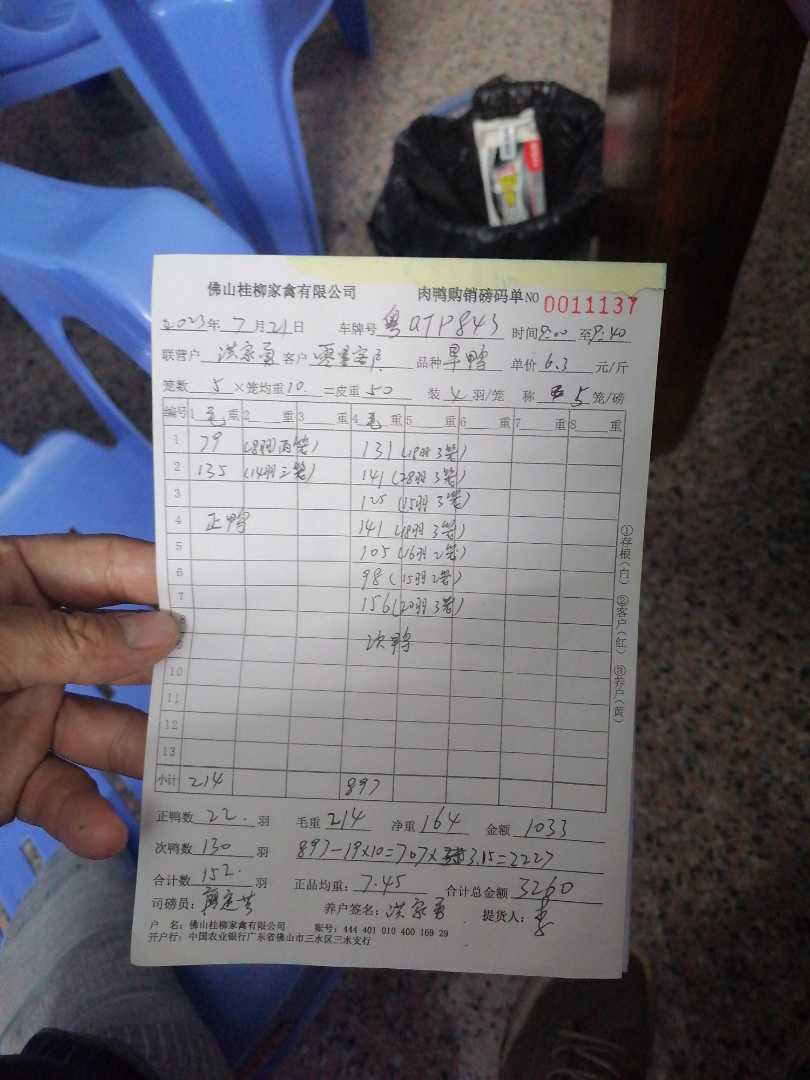 佛山桂柳家禽有限公司 肉鸭购销磅码单 NO 0011137
2023年7月21日 车牌号 粤QTP843 时间9:00至9:40
联营户 洪家勇 客户 零星客户 品种 旱鸭 单价 6.3 元/斤
笼数 5 ×笼均重 10 =皮重 50 装 4 羽/笼 称 5 笼/磅
编号 1 毛 重 2 重 3 重 4 毛 重 5 重 6 重 7 重 8 重
1 79 (8羽两笼) 131 (19羽3笼)
2 135 (14羽三笼) 141 (28羽3笼)
3 125 (15羽3笼)
4 正鸭 141 (18羽3笼)
5 105 (16羽2笼)
6 98 (15羽2笼)
7 156 (20羽3笼)
8
9 次鸭
10
11
12
13
小计 214 897
正鸭数 22. 羽 毛重 214 净重 164 金额 1033
次鸭数 130 羽 897-19×10=707× 3.15=2227
合计数 152. 羽 正品均重: 7.45 合计总金额 3260
司磅员: 养户签名: 洪家勇 提货人: 李
户 名: 佛山桂柳家禽有限公司 账号: 444 401 010 400 169 29
开户行: 中国农业银行广东省佛山市三水区三水支行
①存根(白) ②客户(红) ③养户(黄)